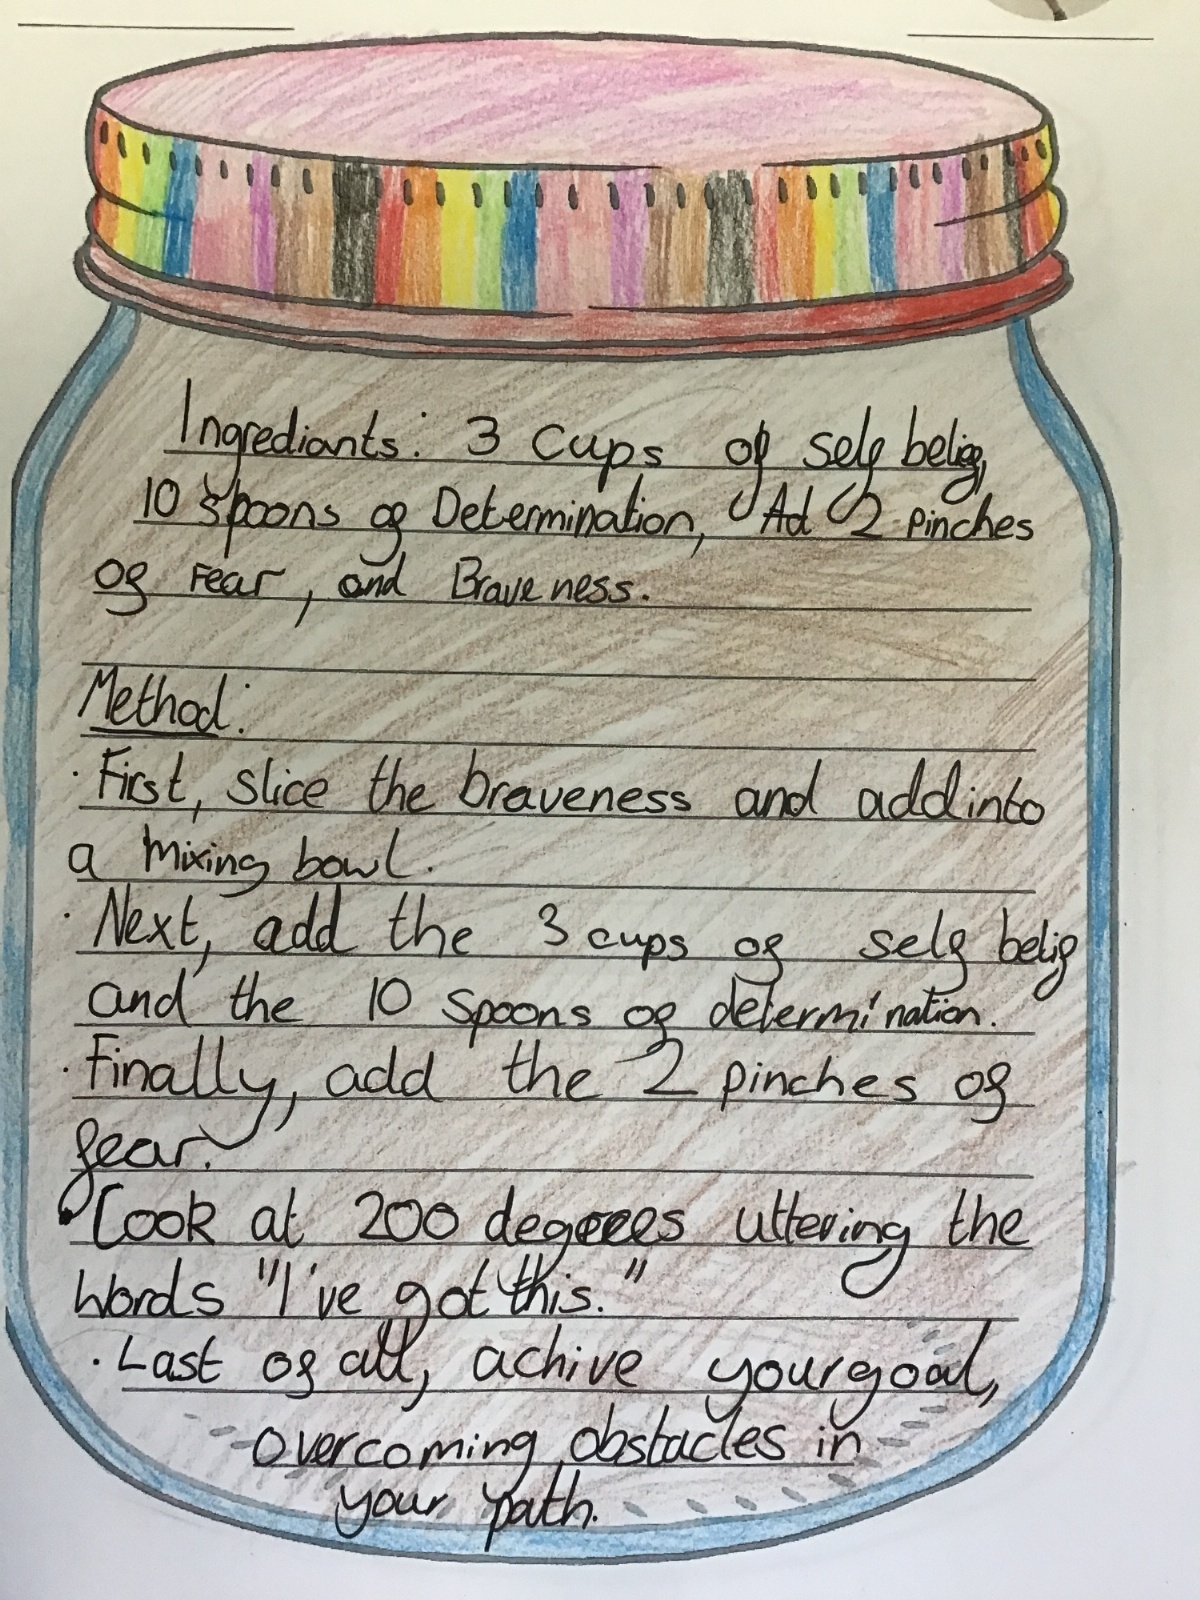 Ingrediants: 3 Cups of self belief,
10 spoons of Determination, Ad 2 pinches
of Fear, and Braveness.
Method:
· First, slice the braveness and add into
a mixing bowl.
· Next, add the 3 cups of self belif
and the 10 spoons of determination.
· Finally, add the 2 pinches of
fear.
· Cook at 200 degrees uttering the
words "I've got this."
· Last of all, achive your goal,
overcoming obstacles in
your path.